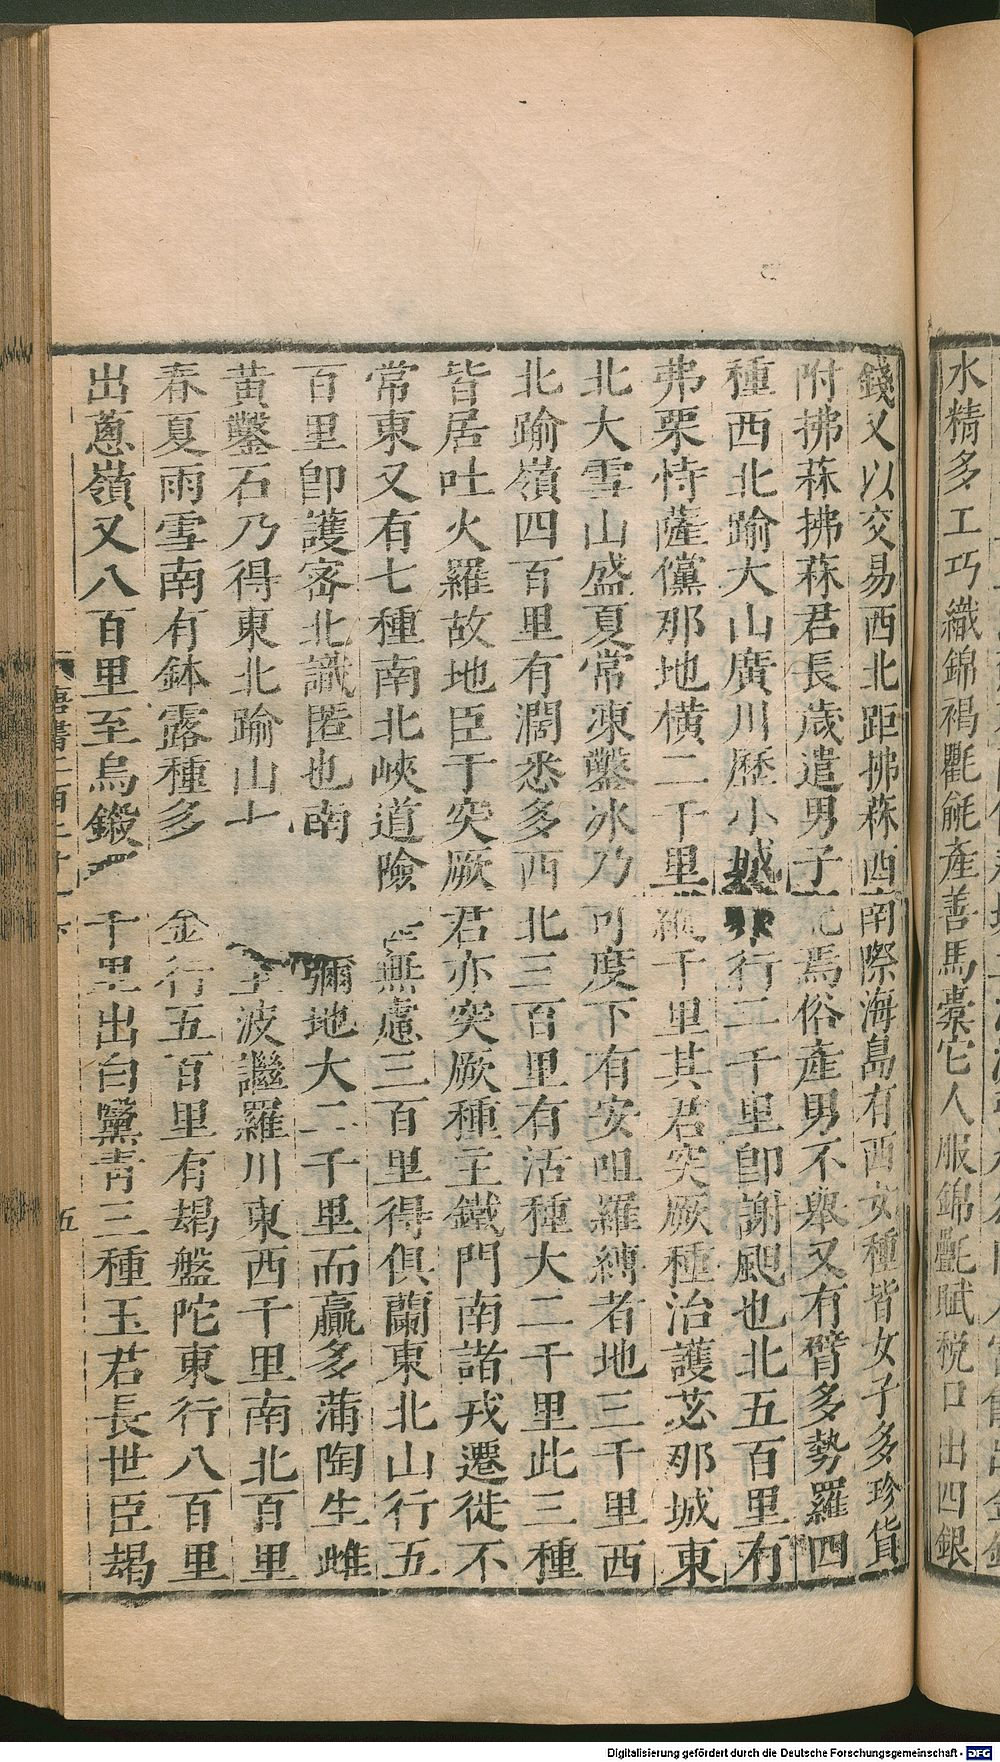 水精多工巧織錦褐氍毹產善馬槖它人服錦氎賦稅口出四銀
錢又以交易西北距拂菻西南際海島有西女種皆女子多珍貨
附拂菻拂菻君長歲遣男子配焉俗產男不舉又有臂多勢羅四
種西北踰大山廣川歷小城 行二千里卽謝䫻也北五百里有
弗栗恃薩儻那地橫二千里縱千里其君突厥種治護苾那城東
北大雪山盛夏常凍鑿冰乃可度下有安呾羅縛者地三千里西
北踰嶺四百里有濶悉多西北三百里有活種大二千里此三種
皆居吐火羅故地臣于突厥君亦突厥種主鐵門南諸戎遷徙不
常東又有七種南北峽道險 無慮三百里得俱蘭東北山行五
百里卽護密北識匿也南 彌地大二千里而贏多蒲陶生雌
黃鑿石乃得東北踰山 至波謎羅川東西千里南北百里
春夏雨雪南有鉢露種多金行五百里有朅盤陀東行八百里
出蔥嶺又八百里至烏鎩 千里出白黳青三種玉君長世臣朅
唐書二百二十一下
五
Digitalisierung gefördert durch die Deutsche Forschungsgemeinschaft - DFG